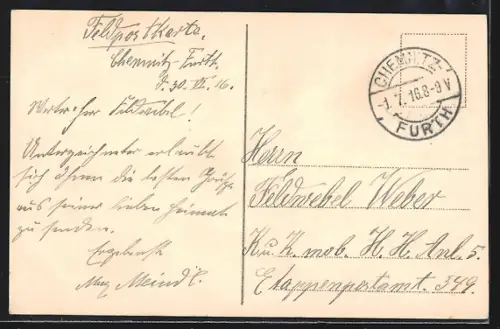 Feldpostkarte.
Chemnitz-Furth.
d. 30. VI. 16.
Werter Herr Feldwebel!
Unterzeichneter erlaubt
sich Ihnen die besten Grüße
aus seiner lieben Heimat
zu senden.
Ergebenst
Max
CHEMNITZ-
1.7.16.8-9V
FURTH
Herrn
Feldwebel Weber
K. u. K. mob. H. H. Anl. 5.
Etappenpostamt. 349.